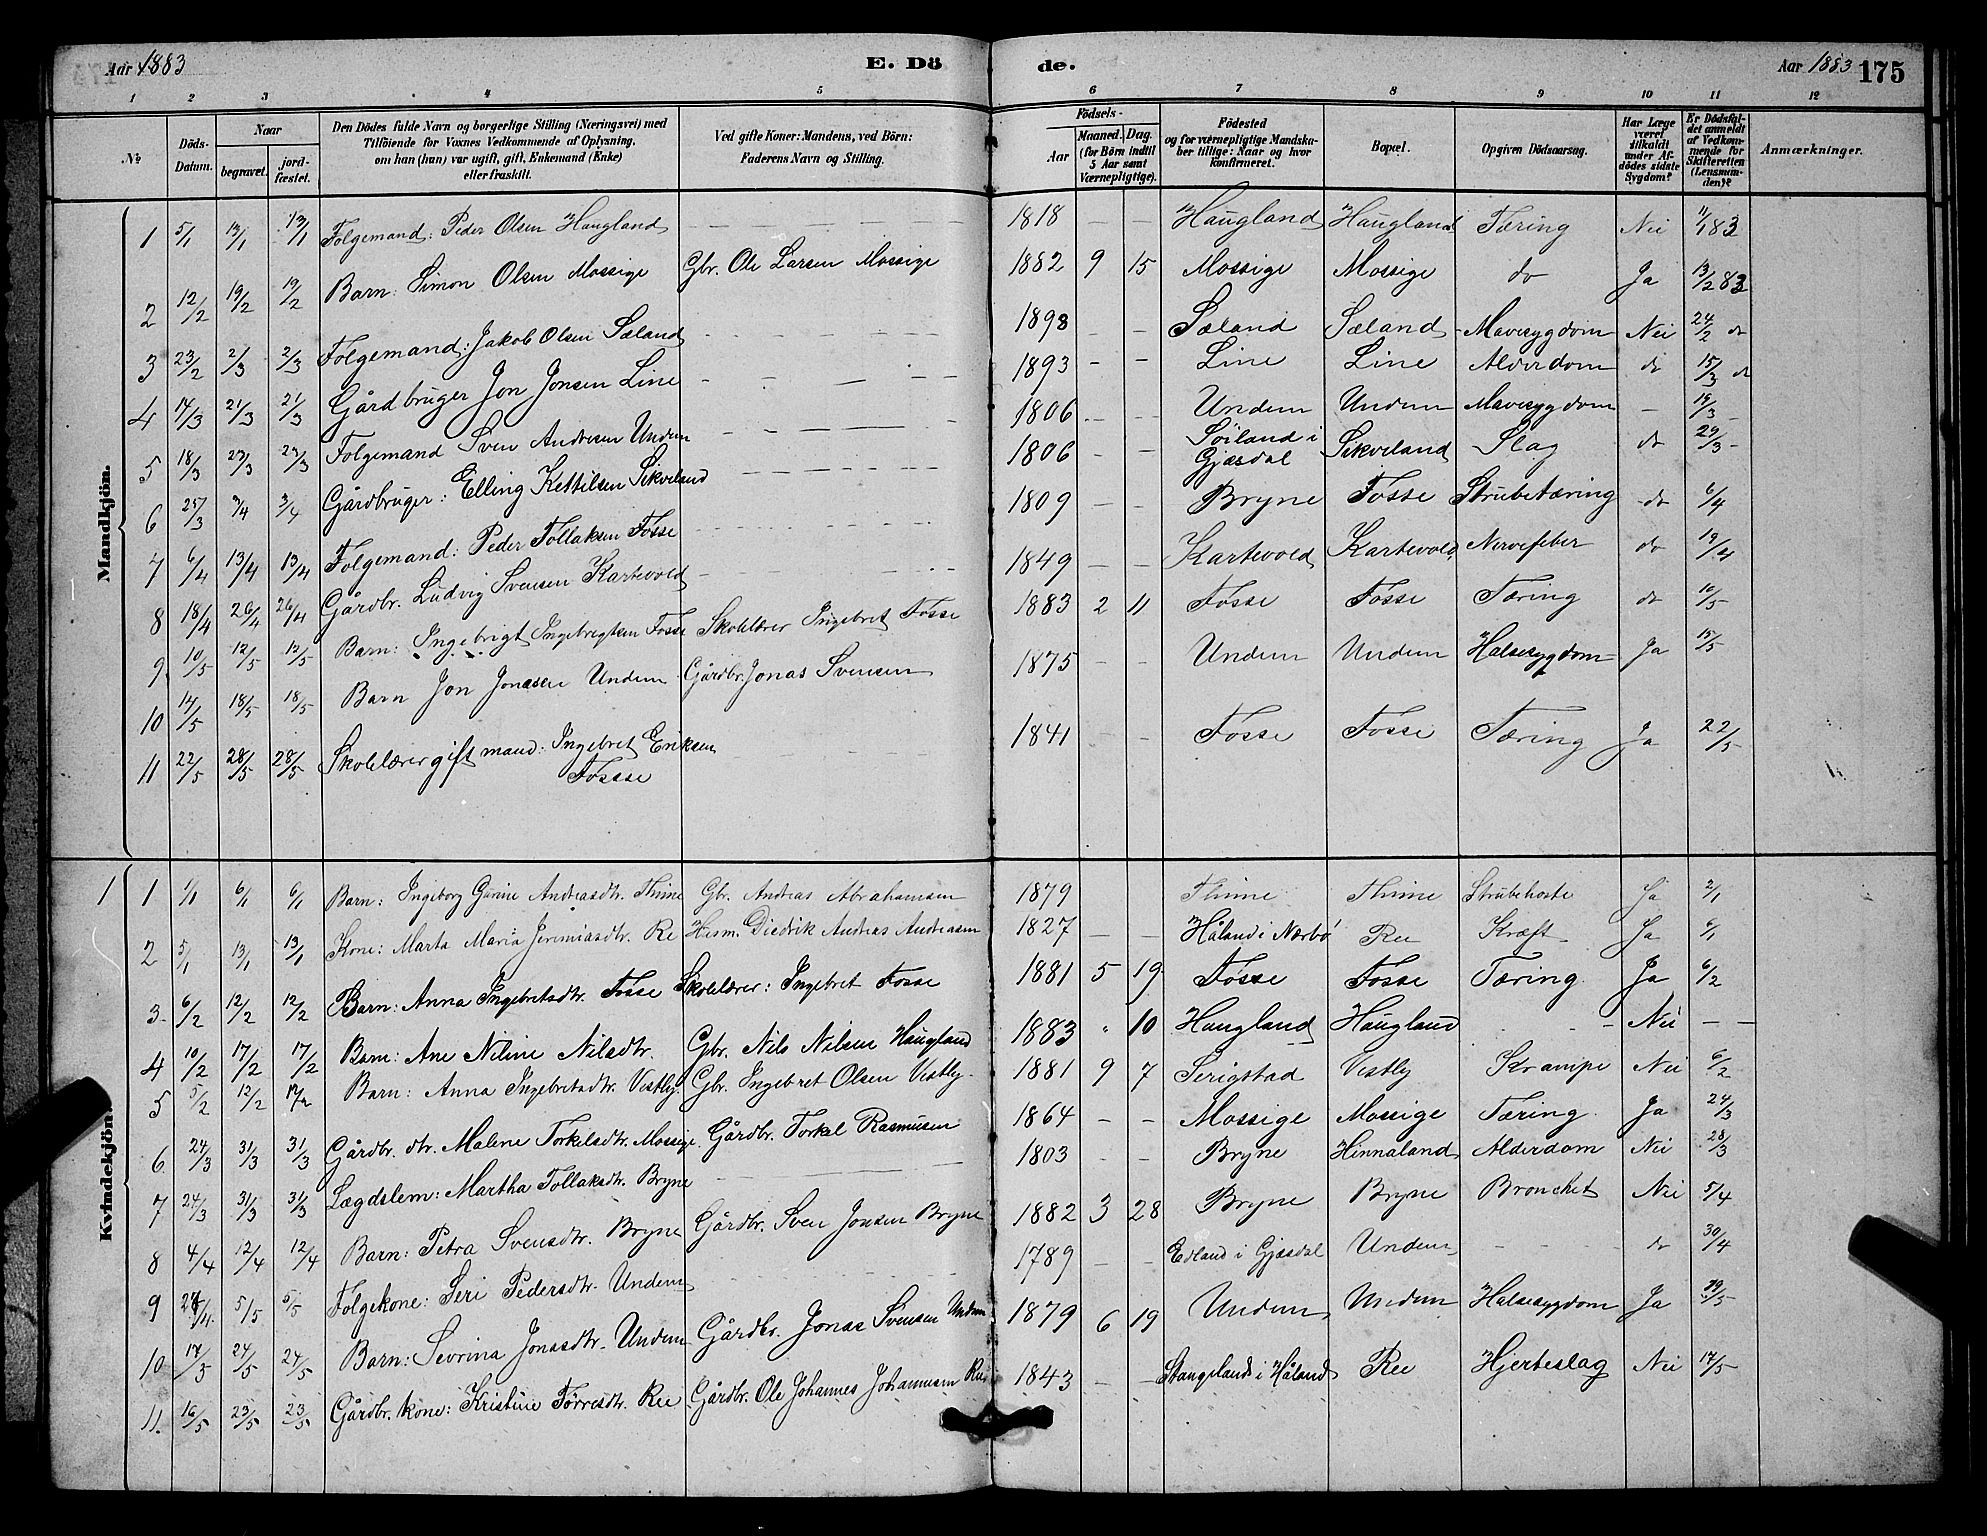 Aar 1883
E. Dö
de.
Aar 1883 175
1 2 3 4 5 6 7 8 9 10 11 12
No
Döds-Datum.
Naar
begravet.
jord-fæstet.
Den Dödes fulde Navn og borgerlige Stilling (Næringsvei) med
Tilföiende for Voxnes Vedkommende af Oplysning,
om han (hun) var ugift, gift, Enkemand (Enke)
eller fraskilt.
Ved gifte Koner: Mandens, ved Börn:
Faderens Navn og Stilling.
Födsels-
Aar
Maaned. Dag.
(for Börn indtil
5 Aar samt
Værnepligtige).
Födested
og for værnepligtige Mandska-
ber tillige: Naar og hvor
konfirmeret.
Bopæl.
Opgiven Dödsaarsag.
Har Læge
været
tilkaldt
under Af-
dödes sidste
Sygdom?
Er Dödsfal-
det anmeldt
af Vedkom-
mende for
Skifteretten
(Lensman-
den)?
Anmærkninger.
Mandkjön.
1 5/1 13/1 13/1 Folgemand: Peder Olsen Haugland — — — 1818 — — Haugland Haugland Tæring Nei 11/1 83
2 12/2 19/2 19/2 Barn: Simon Olsen Mossige Gbr. Ole Larsen Mossige 1882 9 15 Mossige Mossige do Ja 13/2 83
3 23/2 2/3 2/3 Folgemand: Jakob Olsen Sæland 1898 — — Sæland Sæland Mavesygdom Nei 24/2 do
4 14/3 21/3 21/3 Gårdbruger Jon Jonsen Line 1893 — — Line Line Alderdom do 15/3 do
5 18/3 23/3 23/3 Folgemand Sven Andresen Undem 1806 — — Undem Undem Mavesygdom — 19/3
6 25/3 3/4 3/4 Gårdbruger: Elling Kettilsen Sikveland 1806 — — Söiland i Gjæsdal Sikveland Slag do 29/3
7 6/4 13/4 13/4 Folgemand: Peder Tollaksen Fosse 1809 — — Bryne Fosse Strubetæring do 6/4
8 18/4 26/4 26/4 Gårdbr. Ludvig Svensen Kartevold 1849 — — Kartevold Kartevold Nervefeber do 19/4
9 10/5 12/5 12/5 Barn: Ingebrigt Ingebrigtsen Fosse Skolelærer Ingebret Fosse 1883 2 11 Fosse Fosse Tæring do 10/5
10 14/5 18/5 18/5 Barn Jon Jonasen Undem Gårdbr. Jonas Svensen 1875 — — Undem Undem Halssygdom Ja 15/5
11 22/5 28/5 28/5 Skolelærer gift mand: Ingebret Eriksen Fossse 1841 Fosse Fosse Tæring Ja 22/5
Kvindekjön.
1 1 1/1 6/1 6/1 Barn: Ingeborg Gurine Andreasdtr. Thime Gbr. Andreas Abrahamsen 1879 Thime Thime Strubehoste Ja 2/1
2 5/1 13/1 13/1 Kone: Marta Maria Jeremiasdtr. Re Husm. Diedrik Andreas Andreasen 1827 — — Håland i Nærbö Ree Kræft Ja 6/1
3 6/2 12/2 12/2 Barn: Anna Ingebretsdtr. Fosse Skolelærer: Ingebret Fosse 1881 5 19 Fosse Fosse Tæring Ja 6/2
4 10/2 17/2 17/2 Barn: Ane Niline Nilsdtr. Gbr. Nils Nilsen Haugland 1883 " 10 Haugland Haugland — Nei — —
5 5/2 12/2 12/2 Barn: Anna Ingebretsdtr. Vestly Gbr. Ingebret Olsen Vestly 1881 9 7 Serigstad Vestly Krampe Nei 6/2
6 24/3 31/3 31/3 Gårdbr. dtr. Malene Torkelsdtr. Mossige Gårdbr. Torkel Rasmusen 1864 — — Mossige Mossige Tæring Ja 24/3
7 24/3 31/3 31/3 Lægdslem: Martha Tollaksdtr. Bryne 1803 — — Bryne Hinnaland Alderdom Nei 28/3
8 4/4 12/4 12/4 Barn: Petra Svensdtr. Bryne Gårdbr. Sven Jonsen Bryne 1882 3 28 Bryne Bryne Bronchet Nei 5/4
9 27/4 5/5 5/5 Folgekone: Seri Pedersdtr. Undem 1789 — — Edland i Gjæsdal Undem — — do 30/4
10 17/5 24/5 24/5 Barn: Sevrina Jonasdtr. Undem Gårdbr. Jonas Svensen Undem 1879 6 19 Undem Undem Halssygdom Ja 19/5
11. 16/5 23/5 23/5 Gårdbr. kone: Kristine Törresdtr. Ree Gårdbr. Ole Johannes Johannesen Ree 1843 — — Stangeland i Håland Ree Hjerteslag Nei 17/5